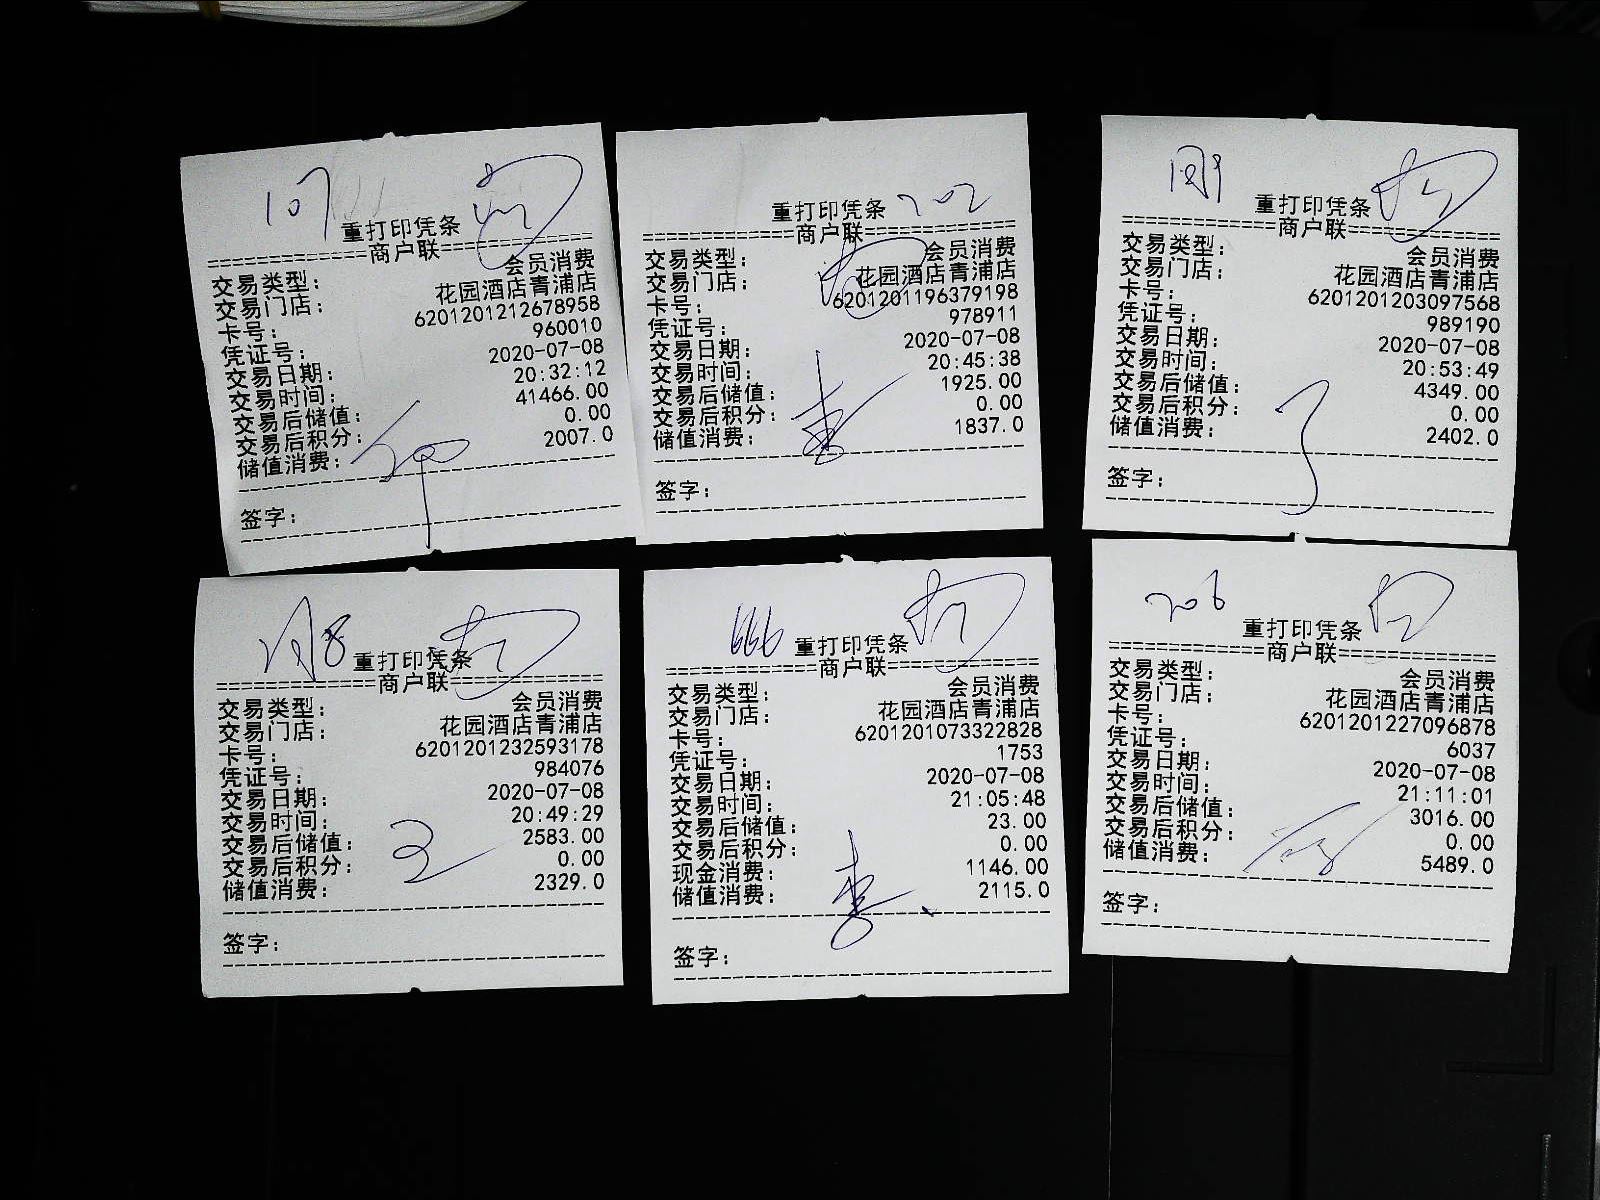 107
重打印凭条
==============商户联==============
交易类型: 会员消费
交易门店: 花园酒店青浦店
卡号: 6201201212678958
凭证号: 960010
交易日期: 2020-07-08
交易时间: 20:32:12
交易后储值: 41466.00
交易后积分: 0.00
储值消费: 2007.0
签字:
重打印凭条 202
==============商户联==============
交易类型: 会员消费
交易门店: 花园酒店青浦店
卡号: 6201201196379198
凭证号: 978911
交易日期: 2020-07-08
交易时间: 20:45:38
交易后储值: 1925.00
交易后积分: 0.00
储值消费: 1837.0
签字:
重打印凭条
==============商户联==============
交易类型: 会员消费
交易门店: 花园酒店青浦店
卡号: 6201201203097568
凭证号: 989190
交易日期: 2020-07-08
交易时间: 20:53:49
交易后储值: 4349.00
交易后积分: 0.00
储值消费: 2402.0
签字:
重打印凭条
==============商户联==============
交易类型: 会员消费
交易门店: 花园酒店青浦店
卡号: 6201201232593178
凭证号: 984076
交易日期: 2020-07-08
交易时间: 20:49:29
交易后储值: 2583.00
交易后积分: 0.00
储值消费: 2329.0
签字:
666 重打印凭条
==============商户联==============
交易类型: 会员消费
交易门店: 花园酒店青浦店
卡号: 6201201073322828
凭证号: 1753
交易日期: 2020-07-08
交易时间: 21:05:48
交易后储值: 23.00
交易后积分: 0.00
现金消费: 1146.00
储值消费: 2115.0
签字:
206
重打印凭条
==============商户联==============
交易类型: 会员消费
交易门店: 花园酒店青浦店
卡号: 6201201227096878
凭证号: 6037
交易日期: 2020-07-08
交易时间: 21:11:01
交易后储值: 3016.00
交易后积分: 0.00
储值消费: 5489.0
签字: